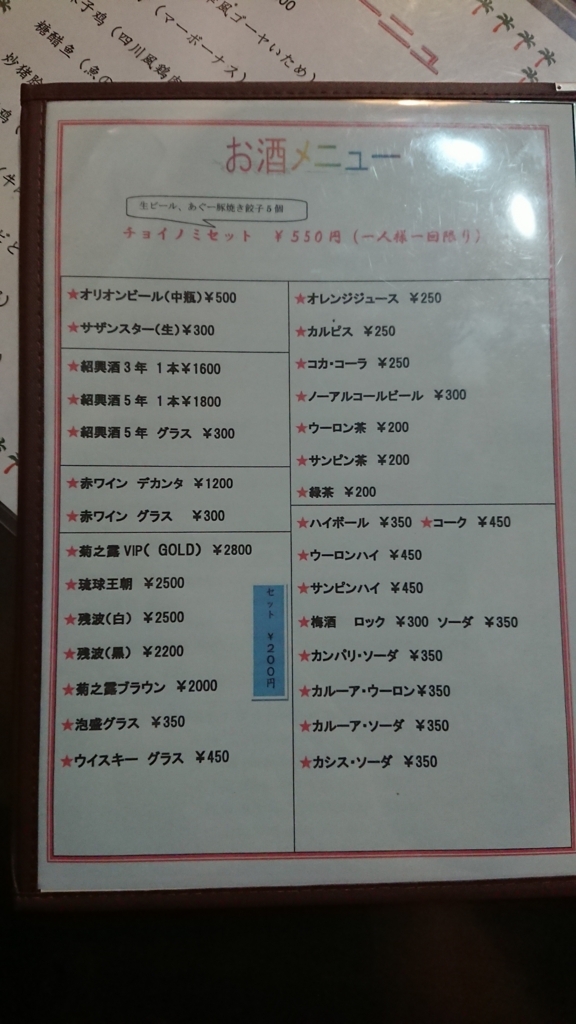 00
風ゴーヤいため)
(マーボーナス)
(四川風鶏肉
糖醋鱼 (魚の
ニュ
お酒メニュー
生ビール、あぐー豚焼き餃子5個
チョイノミセット ¥550円(一人様一回限り)
★オリオンビール(中瓶)¥500
★サザンスター(生)¥300
★紹興酒3年 1本¥1600
★紹興酒5年 1本¥1800
★紹興酒5年 グラス ¥300
★赤ワイン デカンタ ¥1200
★赤ワイン グラス ¥300
★菊之露VIP( GOLD) ¥2800
★琉球王朝 ¥2500
★残波(白) ¥2500
★残波(黒) ¥2200
★菊之露ブラウン ¥2000
★泡盛グラス ¥350
★ウイスキー グラス ¥450
セット ¥200円
★オレンジジュース ¥250
★カルピス ¥250
★コカ・コーラ ¥250
★ノーアルコールビール ¥300
★ウーロン茶 ¥200
★サンピン茶 ¥200
★緑茶 ¥200
★ハイボール ¥350 ★コーク ¥450
★ウーロンハイ ¥450
★サンピンハイ ¥450
★梅酒 ロック ¥300 ソーダ ¥350
★カンパリ・ソーダ ¥350
★カルーア・ウーロン¥350
★カルーア・ソーダ ¥350
★カシス・ソーダ ¥350